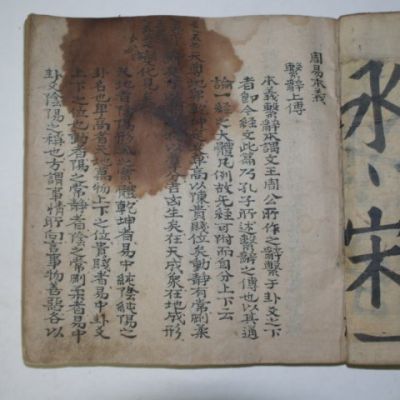 周易本義
繫辭上傳
本義繫辭本謂文王周公所作之辭繫于卦爻之下
者即今經文此篇乃孔子所述繫辭之傳也以其通
論一經之大體凡例故无經可附而自分上下云
天尊地卑乾坤定矣卑高以陳貴賤位矣動靜有常剛柔
矣方以類聚物以羣分吉凶生矣在天成象在地成形
變化見矣
天地者陰陽形氣之實體乾坤者易中純陰純陽之
卦名也卑高者天地萬物上下之位貴賤者易中卦爻
上下之位也動者陽之常靜者陰之常剛柔者易中
卦爻陰陽之稱也方謂事情所向言事物善惡各以
宋